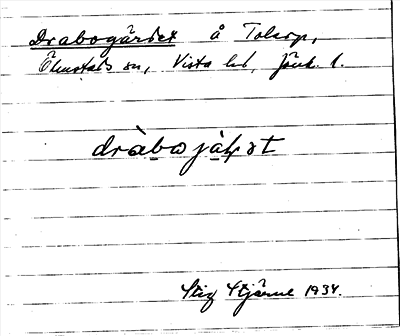 Drabogärdet å Tolarp,
Ölmstads sn, Vista hd, Jönk. l.
dràbo jàḷɔt
Stig Stjärne 1934.